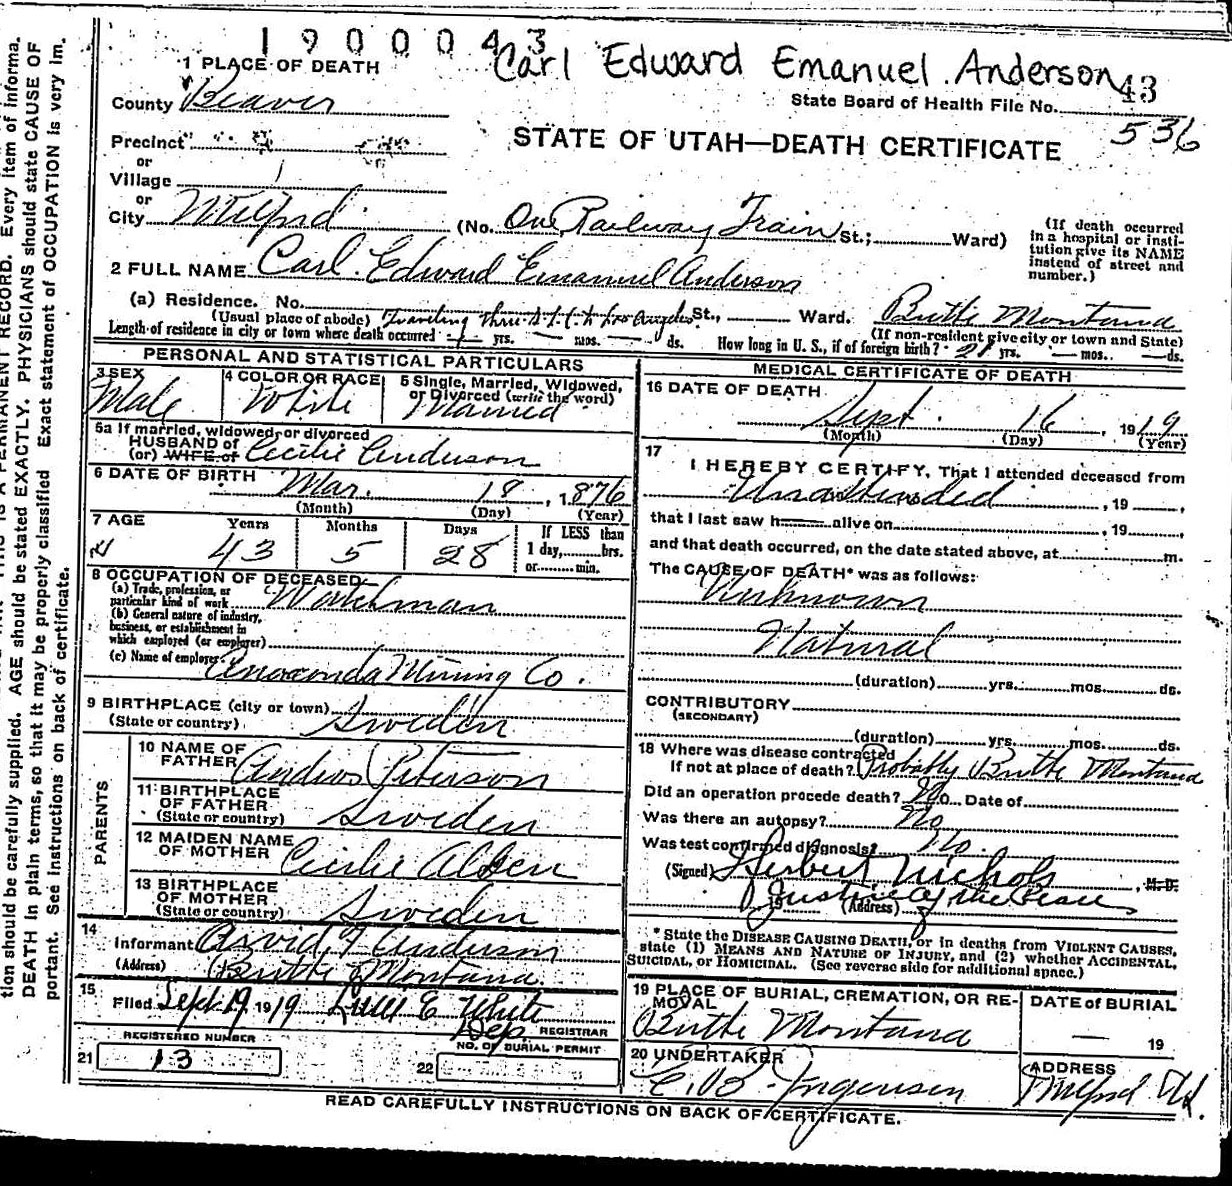 1900043
Carl Edward Emanuel Anderson
43
1 PLACE OF DEATH
County Beaver
State Board of Health File No.
536
Precinct
or
Village
or
City Milford
STATE OF UTAH—DEATH CERTIFICATE
(No. On Railway Train St.; Ward)
(If death occurred in a hospital or institution give its NAME instead of street and number.)
2 FULL NAME Carl Edward Emanuel Anderson
(a) Residence. No. St., Ward. Butte Montana
(Usual place of abode) Traveling thru
(If non-resident give city or town and State)
Length of residence in city or town where death occurred yrs. mos. ds.
How long in U. S., if of foreign birth? 21 yrs. mos. ds.
PERSONAL AND STATISTICAL PARTICULARS
3 SEX Male
4 COLOR OR RACE White
5 Single, Married, Widowed, or Divorced (write the word) Married
5a If married, widowed, or divorced
HUSBAND of
(or) WIFE of Cecilie Anderson
6 DATE OF BIRTH Mar. 18, 1876
(Month) (Day) (Year)
7 AGE Years Months Days
43 5 28
If LESS than 1 day, hrs. or min.
8 OCCUPATION OF DECEASED
(a) Trade, profession, or particular kind of work Watchman
(b) General nature of industry, business, or establishment in which employed (or employer)
(c) Name of employer Anaconda Mining Co.
9 BIRTHPLACE (city or town)
(State or country) Sweden
PARENTS
10 NAME OF FATHER Andros Peterson
11 BIRTHPLACE OF FATHER
(State or country) Sweden
12 MAIDEN NAME OF MOTHER Cecilie
13 BIRTHPLACE OF MOTHER
(State or country) Sweden
14 Informant Arvid Anderson
(Address) Butte Montana.
15 Filed Sept 19 1919 White
Dep. REGISTRAR
REGISTERED NUMBER
NO. OF BURIAL PERMIT
21 13
22
MEDICAL CERTIFICATE OF DEATH
16 DATE OF DEATH
Sept. 16, 1919
(Month) (Day) (Year)
17 I HEREBY CERTIFY, That I attended deceased from
Unattended, 19
that I last saw h alive on, 19
and that death occurred, on the date stated above, at m.
The CAUSE OF DEATH* was as follows:
Unknown
Natural
(duration) yrs. mos. ds.
CONTRIBUTORY
(SECONDARY)
(duration) yrs. mos. ds.
18 Where was disease contracted
If not at place of death? Probably Butte Montana
Did an operation precede death? No Date of
Was there an autopsy? No
Was test confirmed diagnosis? No.
(Signed) Herbert Nichols, M.D.
19 (Address) Justice of the Peace
* State the DISEASE CAUSING DEATH, or in deaths from VIOLENT CAUSES, state (1) MEANS AND NATURE OF INJURY, and (2) whether ACCIDENTAL, SUICIDAL, OR HOMICIDAL. (See reverse side for additional space.)
19 PLACE OF BURIAL, CREMATION, OR REMOVAL
Butte Montana
DATE of BURIAL
— 19
20 UNDERTAKER
ADDRESS
Milford Ut.
READ CAREFULLY INSTRUCTIONS ON BACK OF CERTIFICATE.
tion should be carefully supplied. AGE should be stated EXACTLY. PHYSICIANS should state CAUSE OF
DEATH in plain terms, so that it may be properly classified. Exact statement of OCCUPATION is very im-
portant. See instructions on back of certificate.